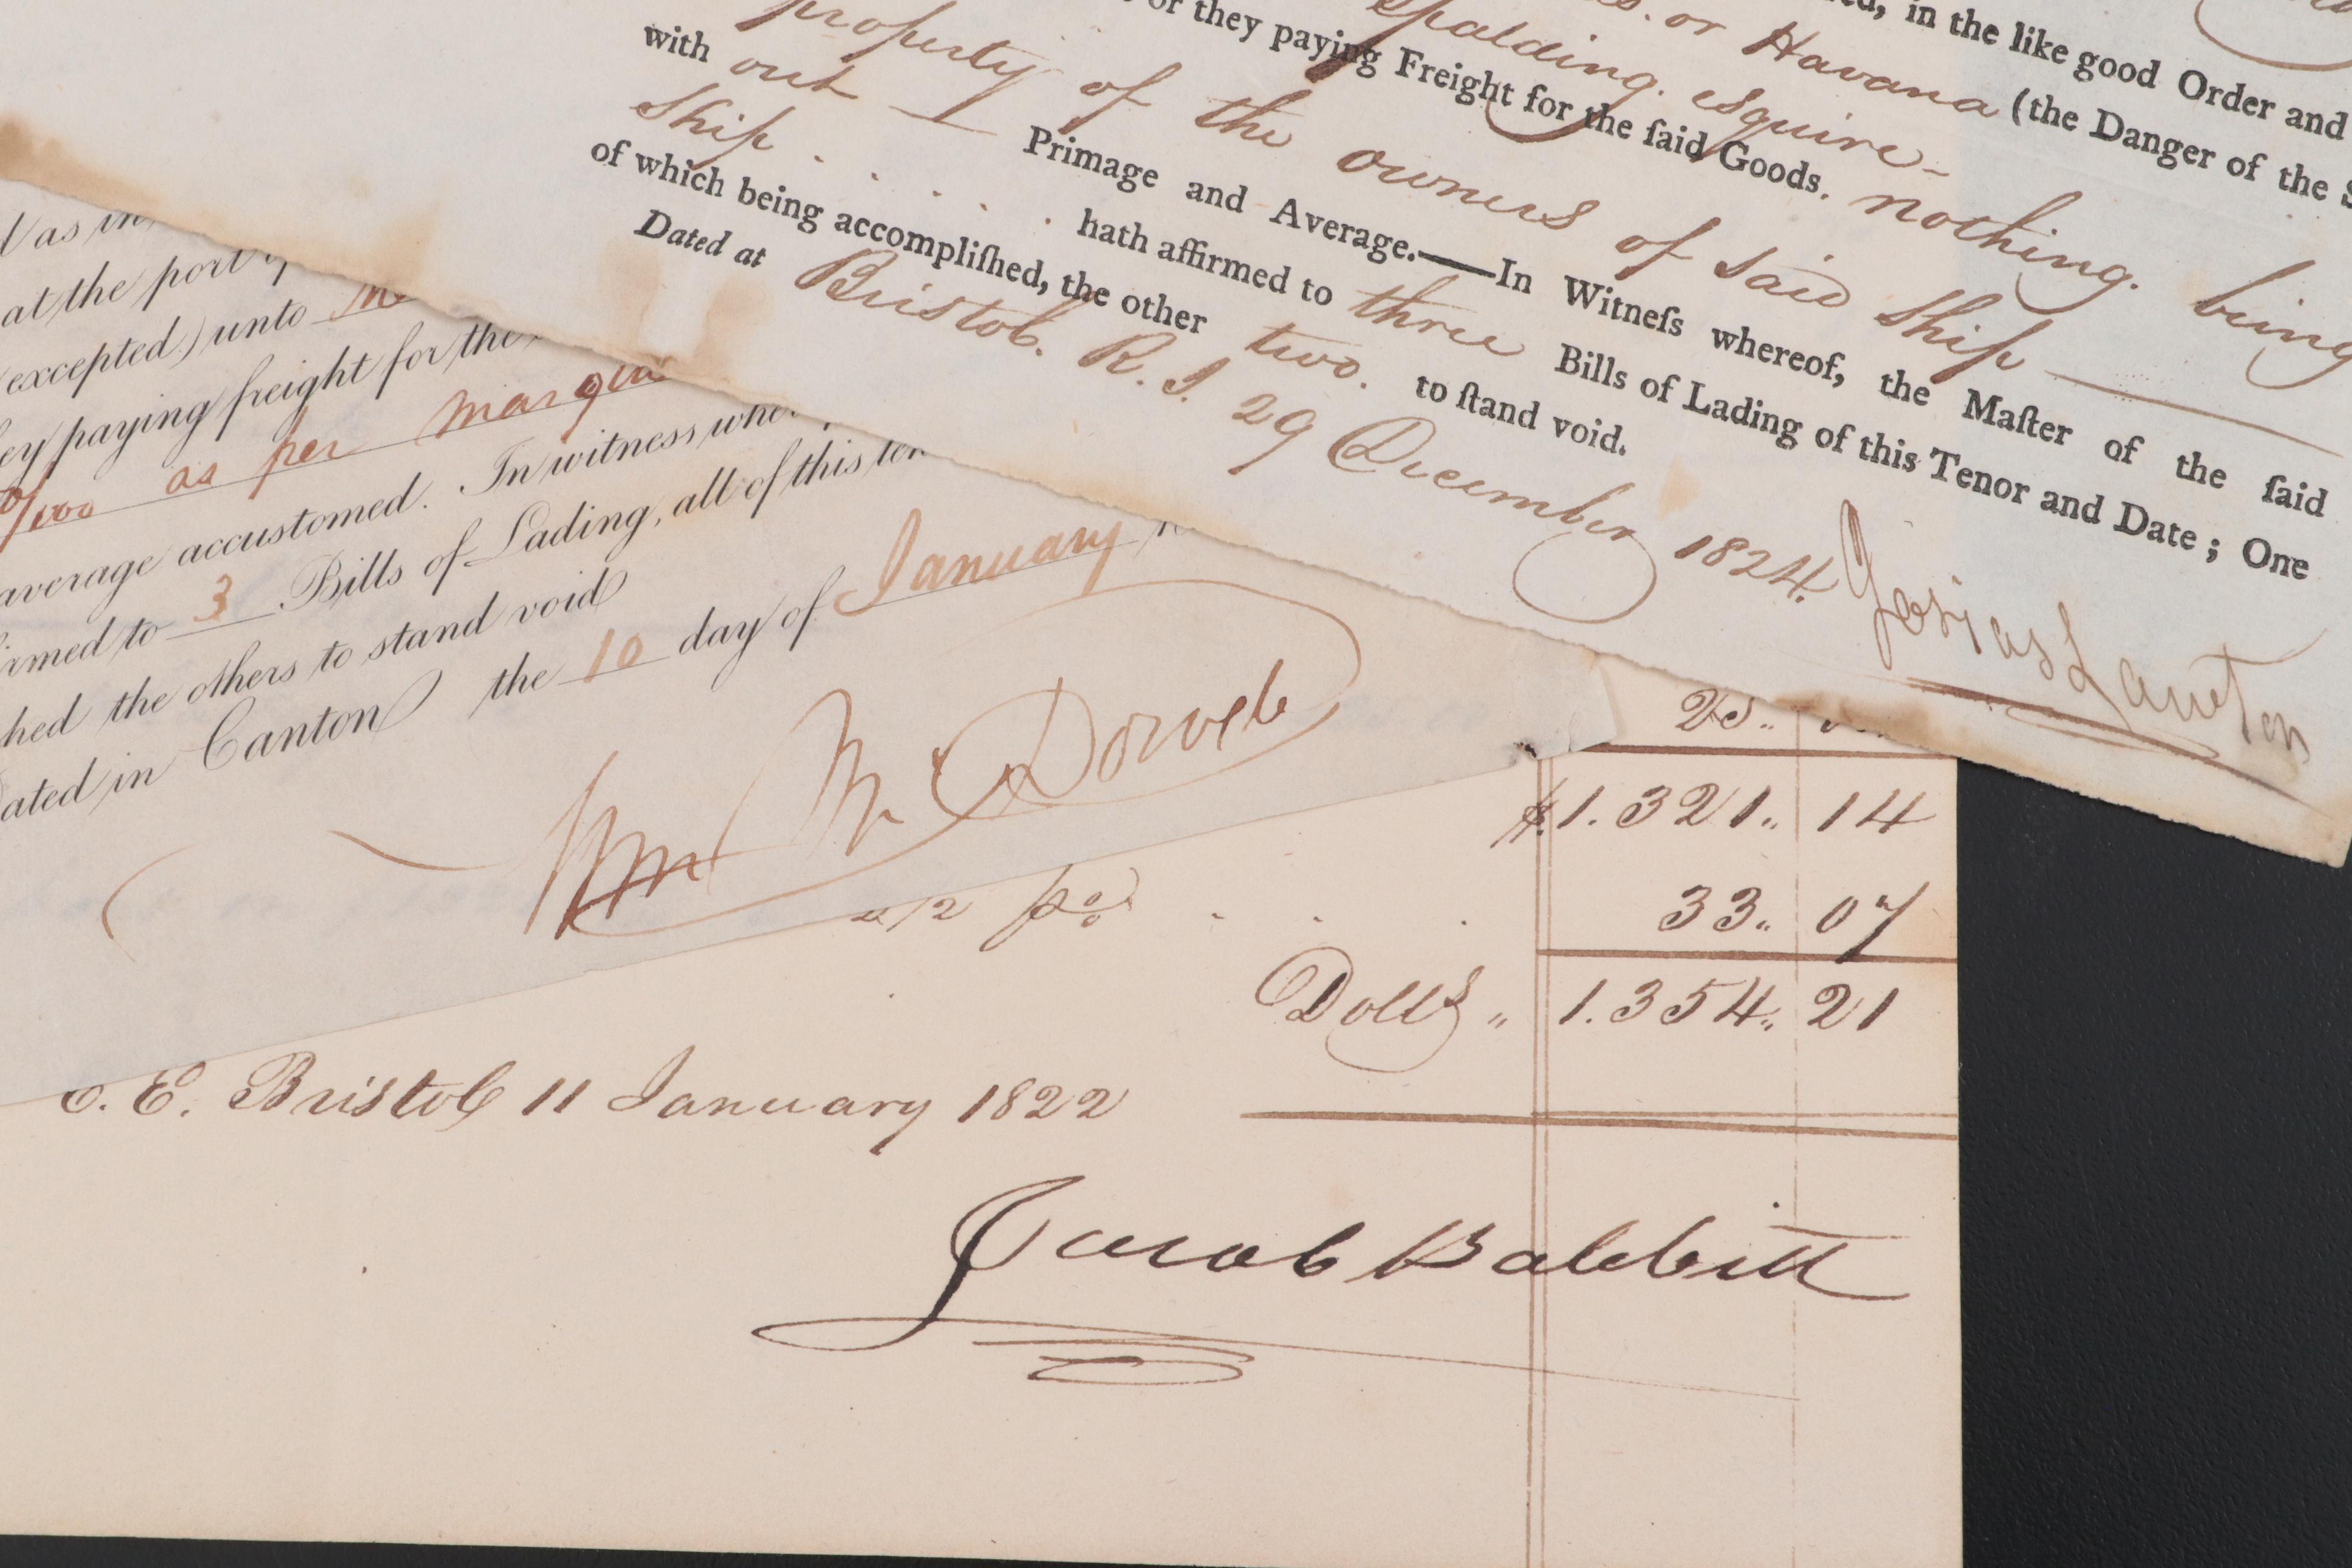 in the like good Order and
or Havana (the Danger of the
Spalding. esquire
or they paying Freight for the ſaid Goods. nothing. being
property of the owners of Said Ship
with out Primage and Average.—In Witneſs whereof, the Maſter of the ſaid
Ship hath affirmed to three Bills of Lading of this Tenor and Date; One
of which being accompliſhed, the other two. to ſtand void.
Dated at Bristol. R. I. 29 December 1824.
Josias Lawton
as in
at the port
excepted) unto
paying freight for the
as per margin
average accustomed. In witness
to 3 Bills of Lading, all of this
the others to stand void
in Canton the 10 day of January
Wm
$1.321.. 14
33.. 07
Dolls " 1.354.. 21
E. E. Bristol 11 January 1822
Jacob Babbitt